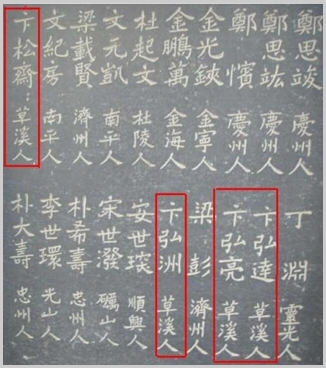 鄭思竣 慶州人
鄭思竑 慶州人
鄭憤 慶州人
金光鋏 金寧人
金鵬萬 金海人
杜起文 杜陵人
文元凱 南平人
梁載賢 濟州人
文紀房 南平人
卞松齋 草溪人
丁淵 靈光人
卞弘達 草溪人
卞弘亮 草溪人
梁彭 濟州人
卞弘洲 草溪人
安世琰 順興人
宋世潑 礪山人
朴希壽 忠州人
李世環 光山人
朴大壽 忠州人